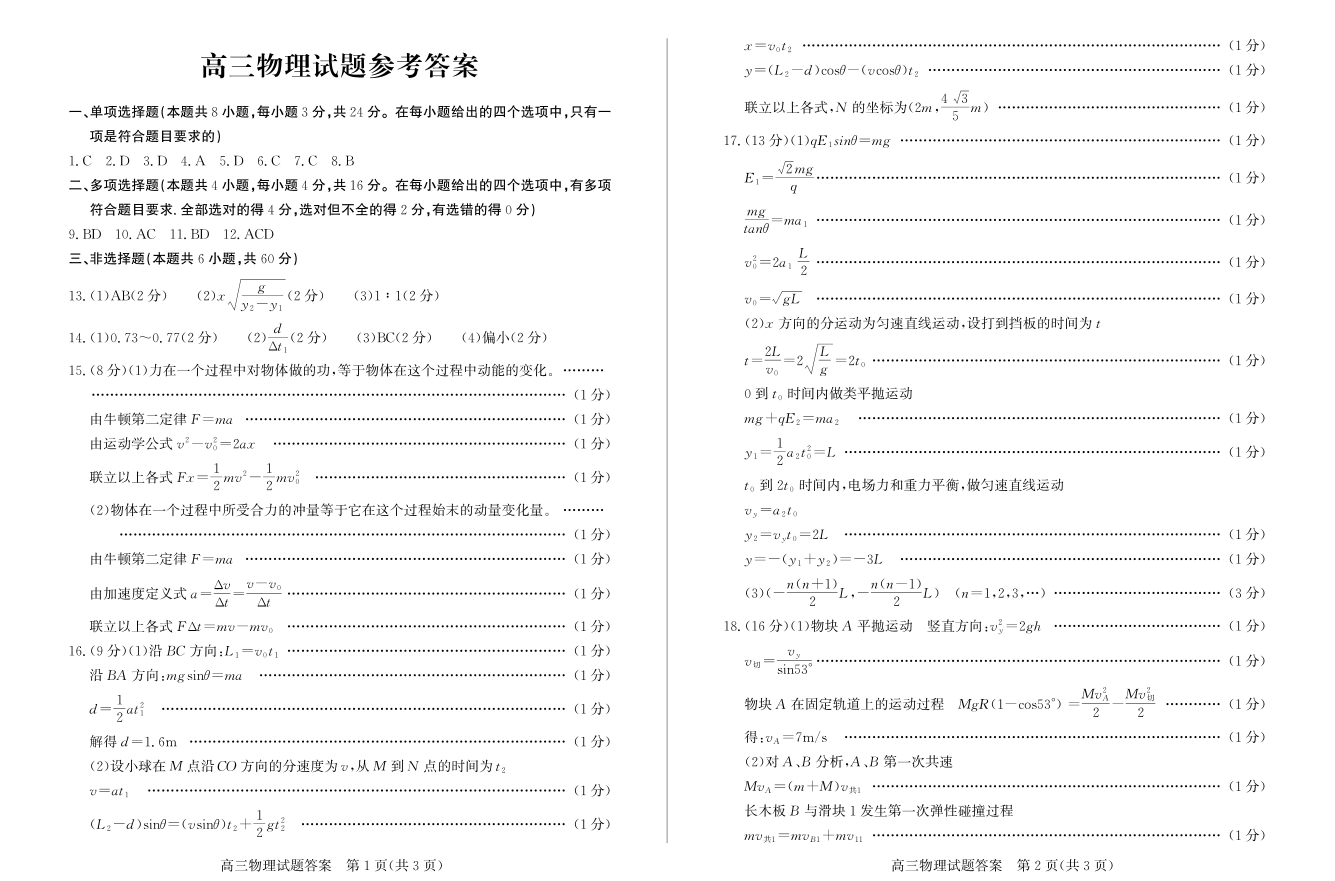 高三物理试题参考答案
一、单项选择题(本题共 8 小题,每小题 3 分,共 24 分。在每小题给出的四个选项中,只有一
项是符合题目要求的)
1. C 2. D 3. D 4. A 5. D 6. C 7. C 8. B
二、多项选择题(本题共 4 小题,每小题 4 分,共 16 分。在每小题给出的四个选项中,有多项
符合题目要求. 全部选对的得 4 分,选对但不全的得 2 分,有选错的得 0 分)
9. BD 10. AC 11. BD 12. ACD
三、非选择题(本题共 6 小题,共 60 分)
13. (1)AB(2 分) (2)x√(g/(y₂−y₁))(2 分) (3)1∶1(2 分)
14. (1)0.73~0.77(2 分) (2)d/Δt₁(2 分) (3)BC(2 分) (4)偏小(2 分)
15. (8 分)(1)力在一个过程中对物体做的功,等于物体在这个过程中动能的变化。………
……………………(1 分)
由牛顿第二定律 F=ma ……………………(1 分)
由运动学公式 v²−v₀²=2ax ……………………(1 分)
联立以上各式 Fx=1/2mv²−1/2mv₀² ……………………(1 分)
(2)物体在一个过程中所受合力的冲量等于它在这个过程始末的动量变化量。………
……………………(1 分)
由牛顿第二定律 F=ma ……………………(1 分)
由加速度定义式 a=Δv/Δt=(v−v₀)/Δt ……………………(1 分)
联立以上各式 FΔt=mv−mv₀ ……………………(1 分)
16. (9 分)(1)沿 BC 方向:L₁=v₀t₁ ……………………(1 分)
沿 BA 方向:mgsinθ=ma ……………………(1 分)
d=1/2at₁² ……………………(1 分)
解得 d=1.6m ……………………(1 分)
(2)设小球在 M 点沿 CO 方向的分速度为 v,从 M 到 N 点的时间为 t₂
v=at₁ ……………………(1 分)
(L₂−d)sinθ=(vsinθ)t₂+1/2gt₂² ……………………(1 分)
高三物理试题答案 第 1 页(共 3 页)
x=v₀t₂ ……………………(1 分)
y=(L₂−d)cosθ−(vcosθ)t₂ ……………………(1 分)
联立以上各式,N 的坐标为(2m,4√3/5m) ……………………(1 分)
17. (13 分)(1)qE₁sinθ=mg ……………………(1 分)
E₁=√2mg/q ……………………(1 分)
mg/tanθ=ma₁ ……………………(1 分)
v₀²=2a₁L/2 ……………………(1 分)
v₀=√gL ……………………(1 分)
(2)x 方向的分运动为匀速直线运动,设打到挡板的时间为 t
t=2L/v₀=2√(L/g)=2t₀ ……………………(1 分)
0 到 t₀ 时间内做类平抛运动
mg+qE₂=ma₂ ……………………(1 分)
y₁=1/2a₂t₀²=L ……………………(1 分)
t₀ 到 2t₀ 时间内,电场力和重力平衡,做匀速直线运动
vy=a₂t₀
y₂=vyt₀=2L ……………………(1 分)
y=−(y₁+y₂)=−3L ……………………(1 分)
(3)(−n(n+1)/2L,−n(n−1)/2L) (n=1,2,3,…) ……………………(3 分)
18. (16 分)(1)物块 A 平抛运动 竖直方向:vy²=2gh ……………………(1 分)
v切=vy/sin53° ……………………(1 分)
物块 A 在固定轨道上的运动过程 MgR(1−cos53°)=MvA²/2−Mv切²/2 …………(1 分)
得:vA=7m/s ……………………(1 分)
(2)对 A、B 分析,A、B 第一次共速
MvA=(m+M)v共1 ……………………(1 分)
长木板 B 与滑块 1 发生第一次弹性碰撞过程
mv共1=mvB1+mv11 ……………………(1 分)
高三物理试题答案 第 2 页(共 3 页)